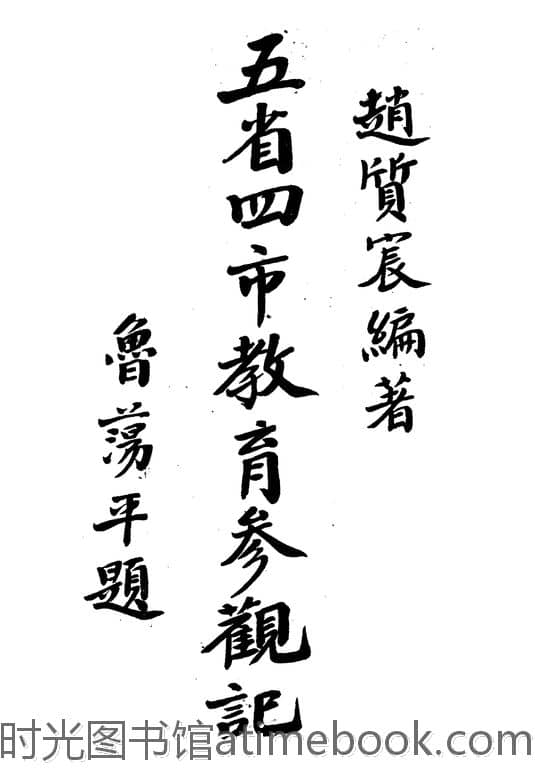 趙質宸編著
五省四市教育参觀記
魯蕩平題
时光图书馆atimebook.com